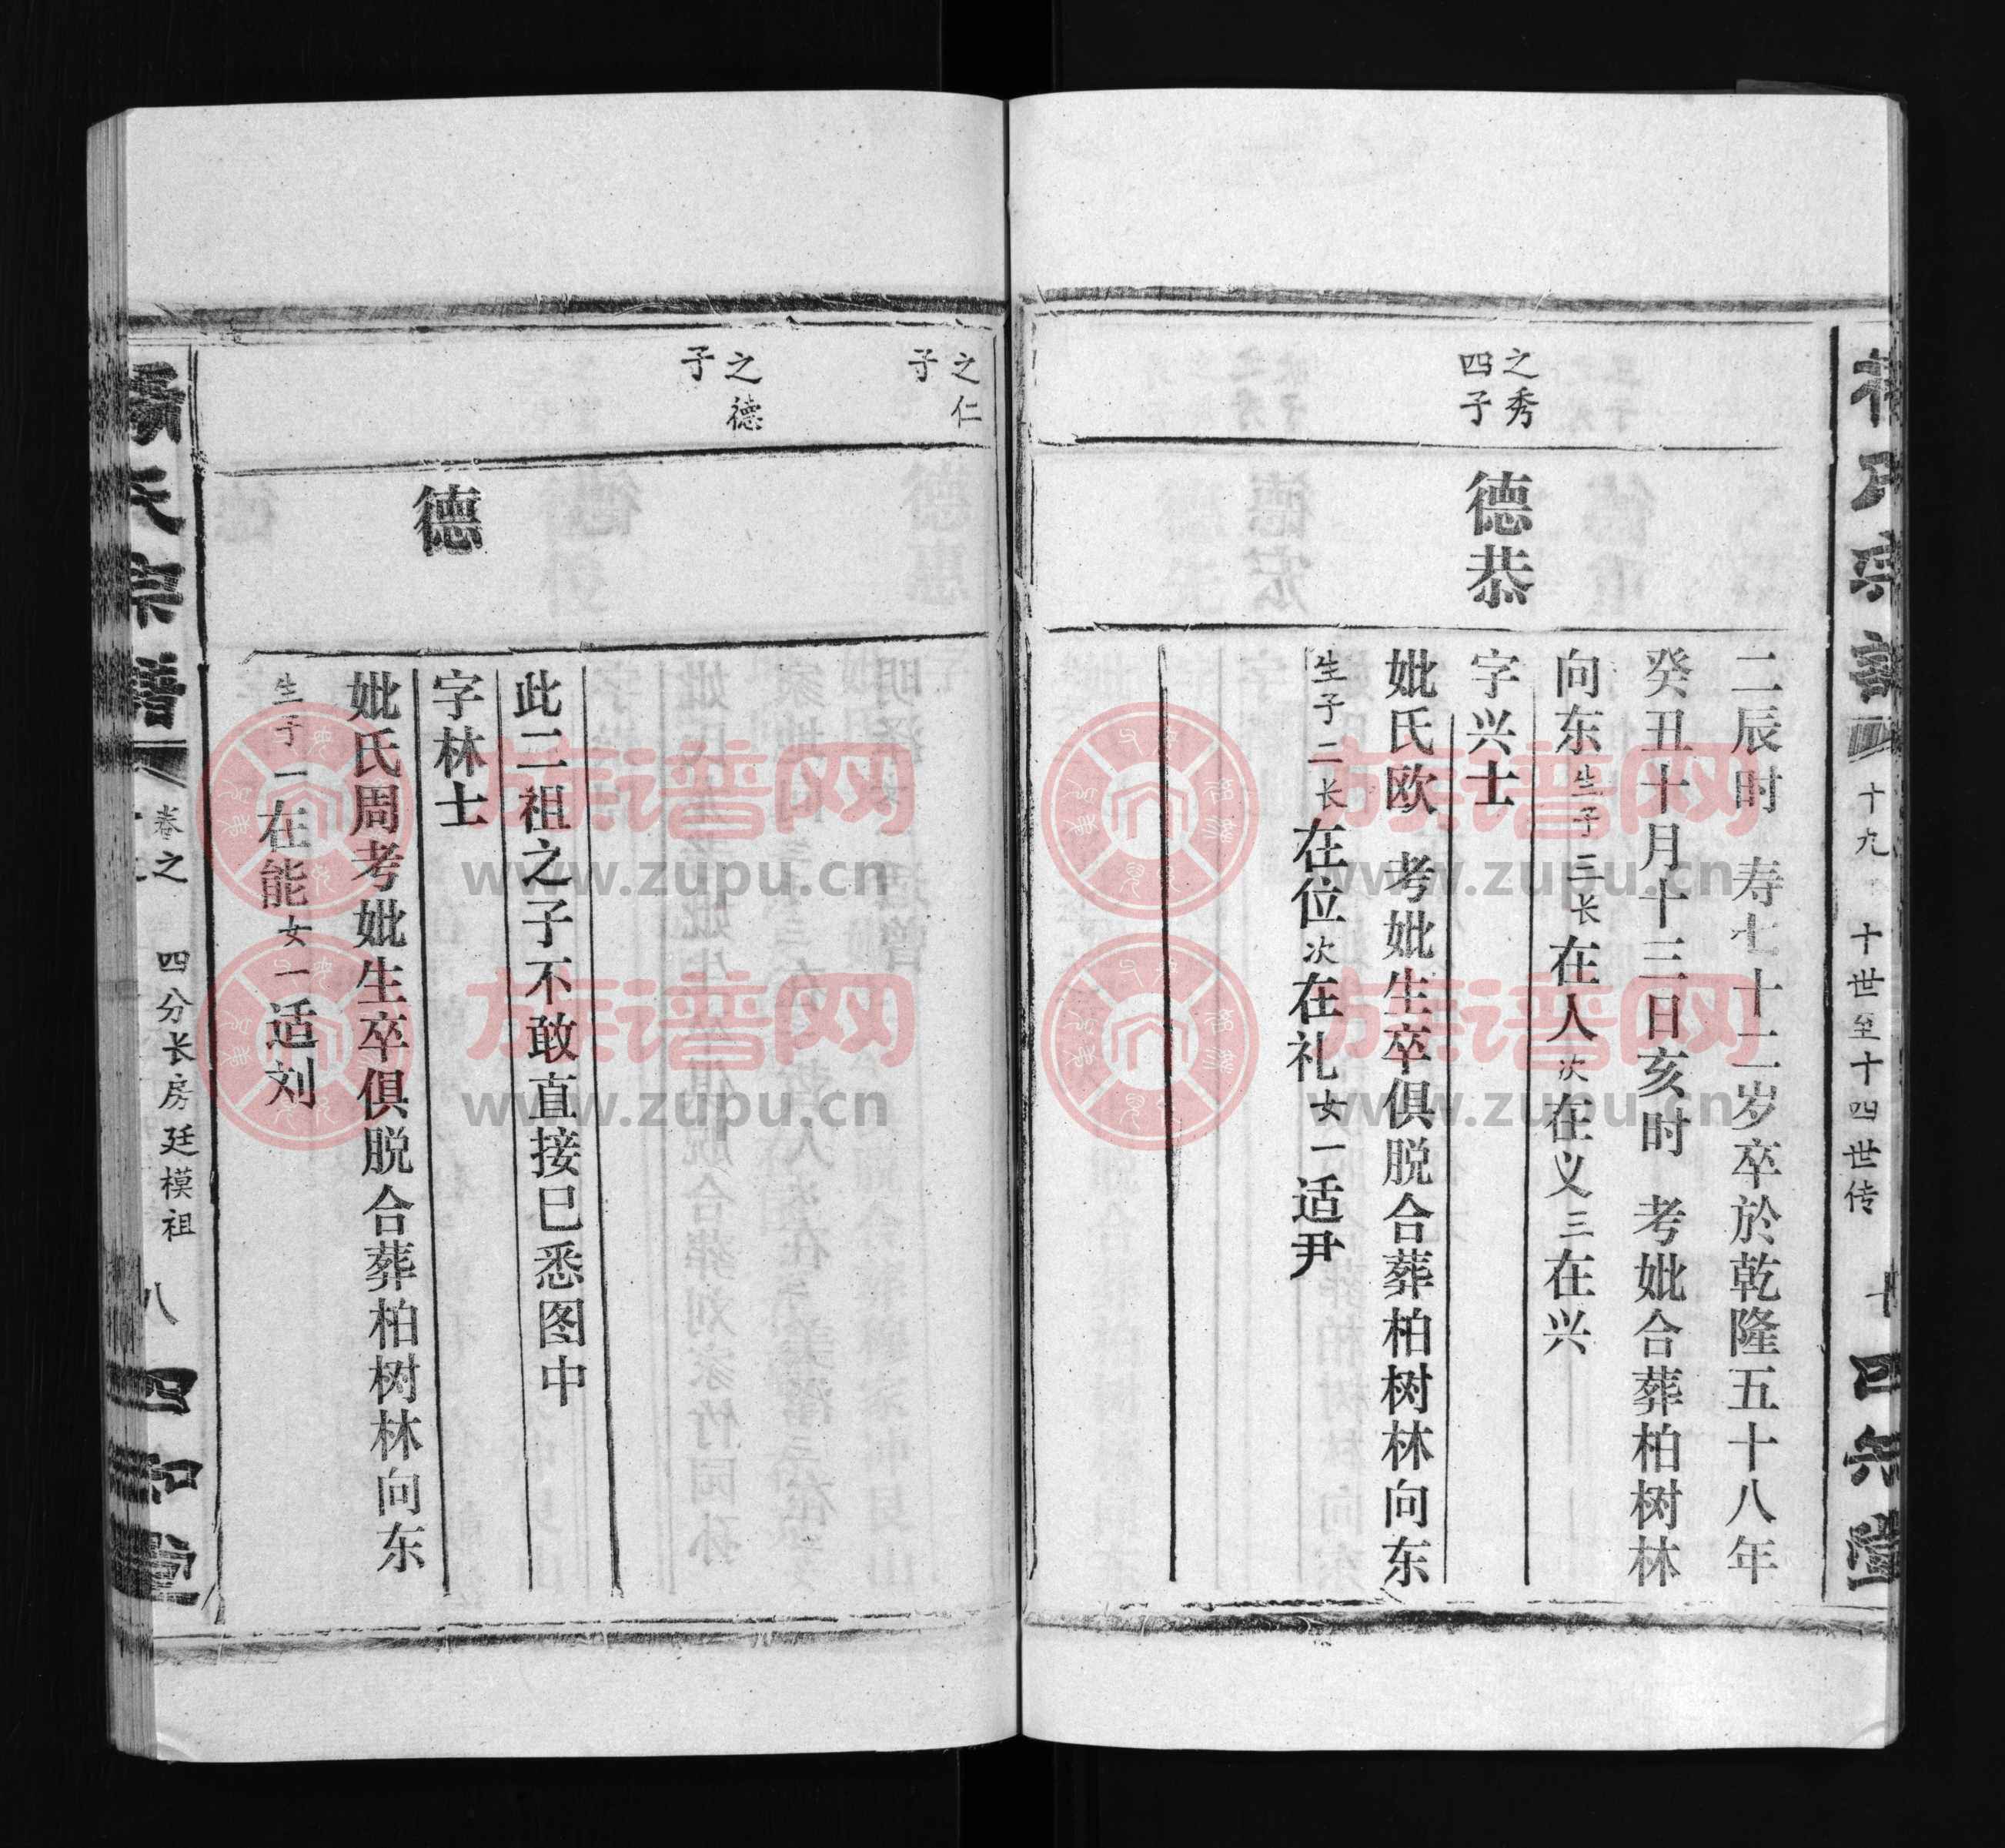 十九
十世至十四世传
二辰时 寿七十二岁卒於乾隆五十八年
癸丑十月十三日亥时 考妣合葬柏树林
向东生子三长在人次在义三在兴
之秀
四子
德恭
字兴士
妣氏欧 考妣生卒俱脱合葬柏树林向东
生子二长在位次在礼女一适尹
之仁
子
之德
子
此二祖之子不敢直接巳悉图中
德
字林士
妣氏周考妣生卒俱脱合葬柏树林向东
生子一在能女一适刘
杨氏宗谱
卷之
四分长房廷模祖
八
四知堂
族谱网
www.zupu.cn
族谱网
www.zupu.cn
族谱网
www.zupu.cn
族谱网
www.zupu.cn